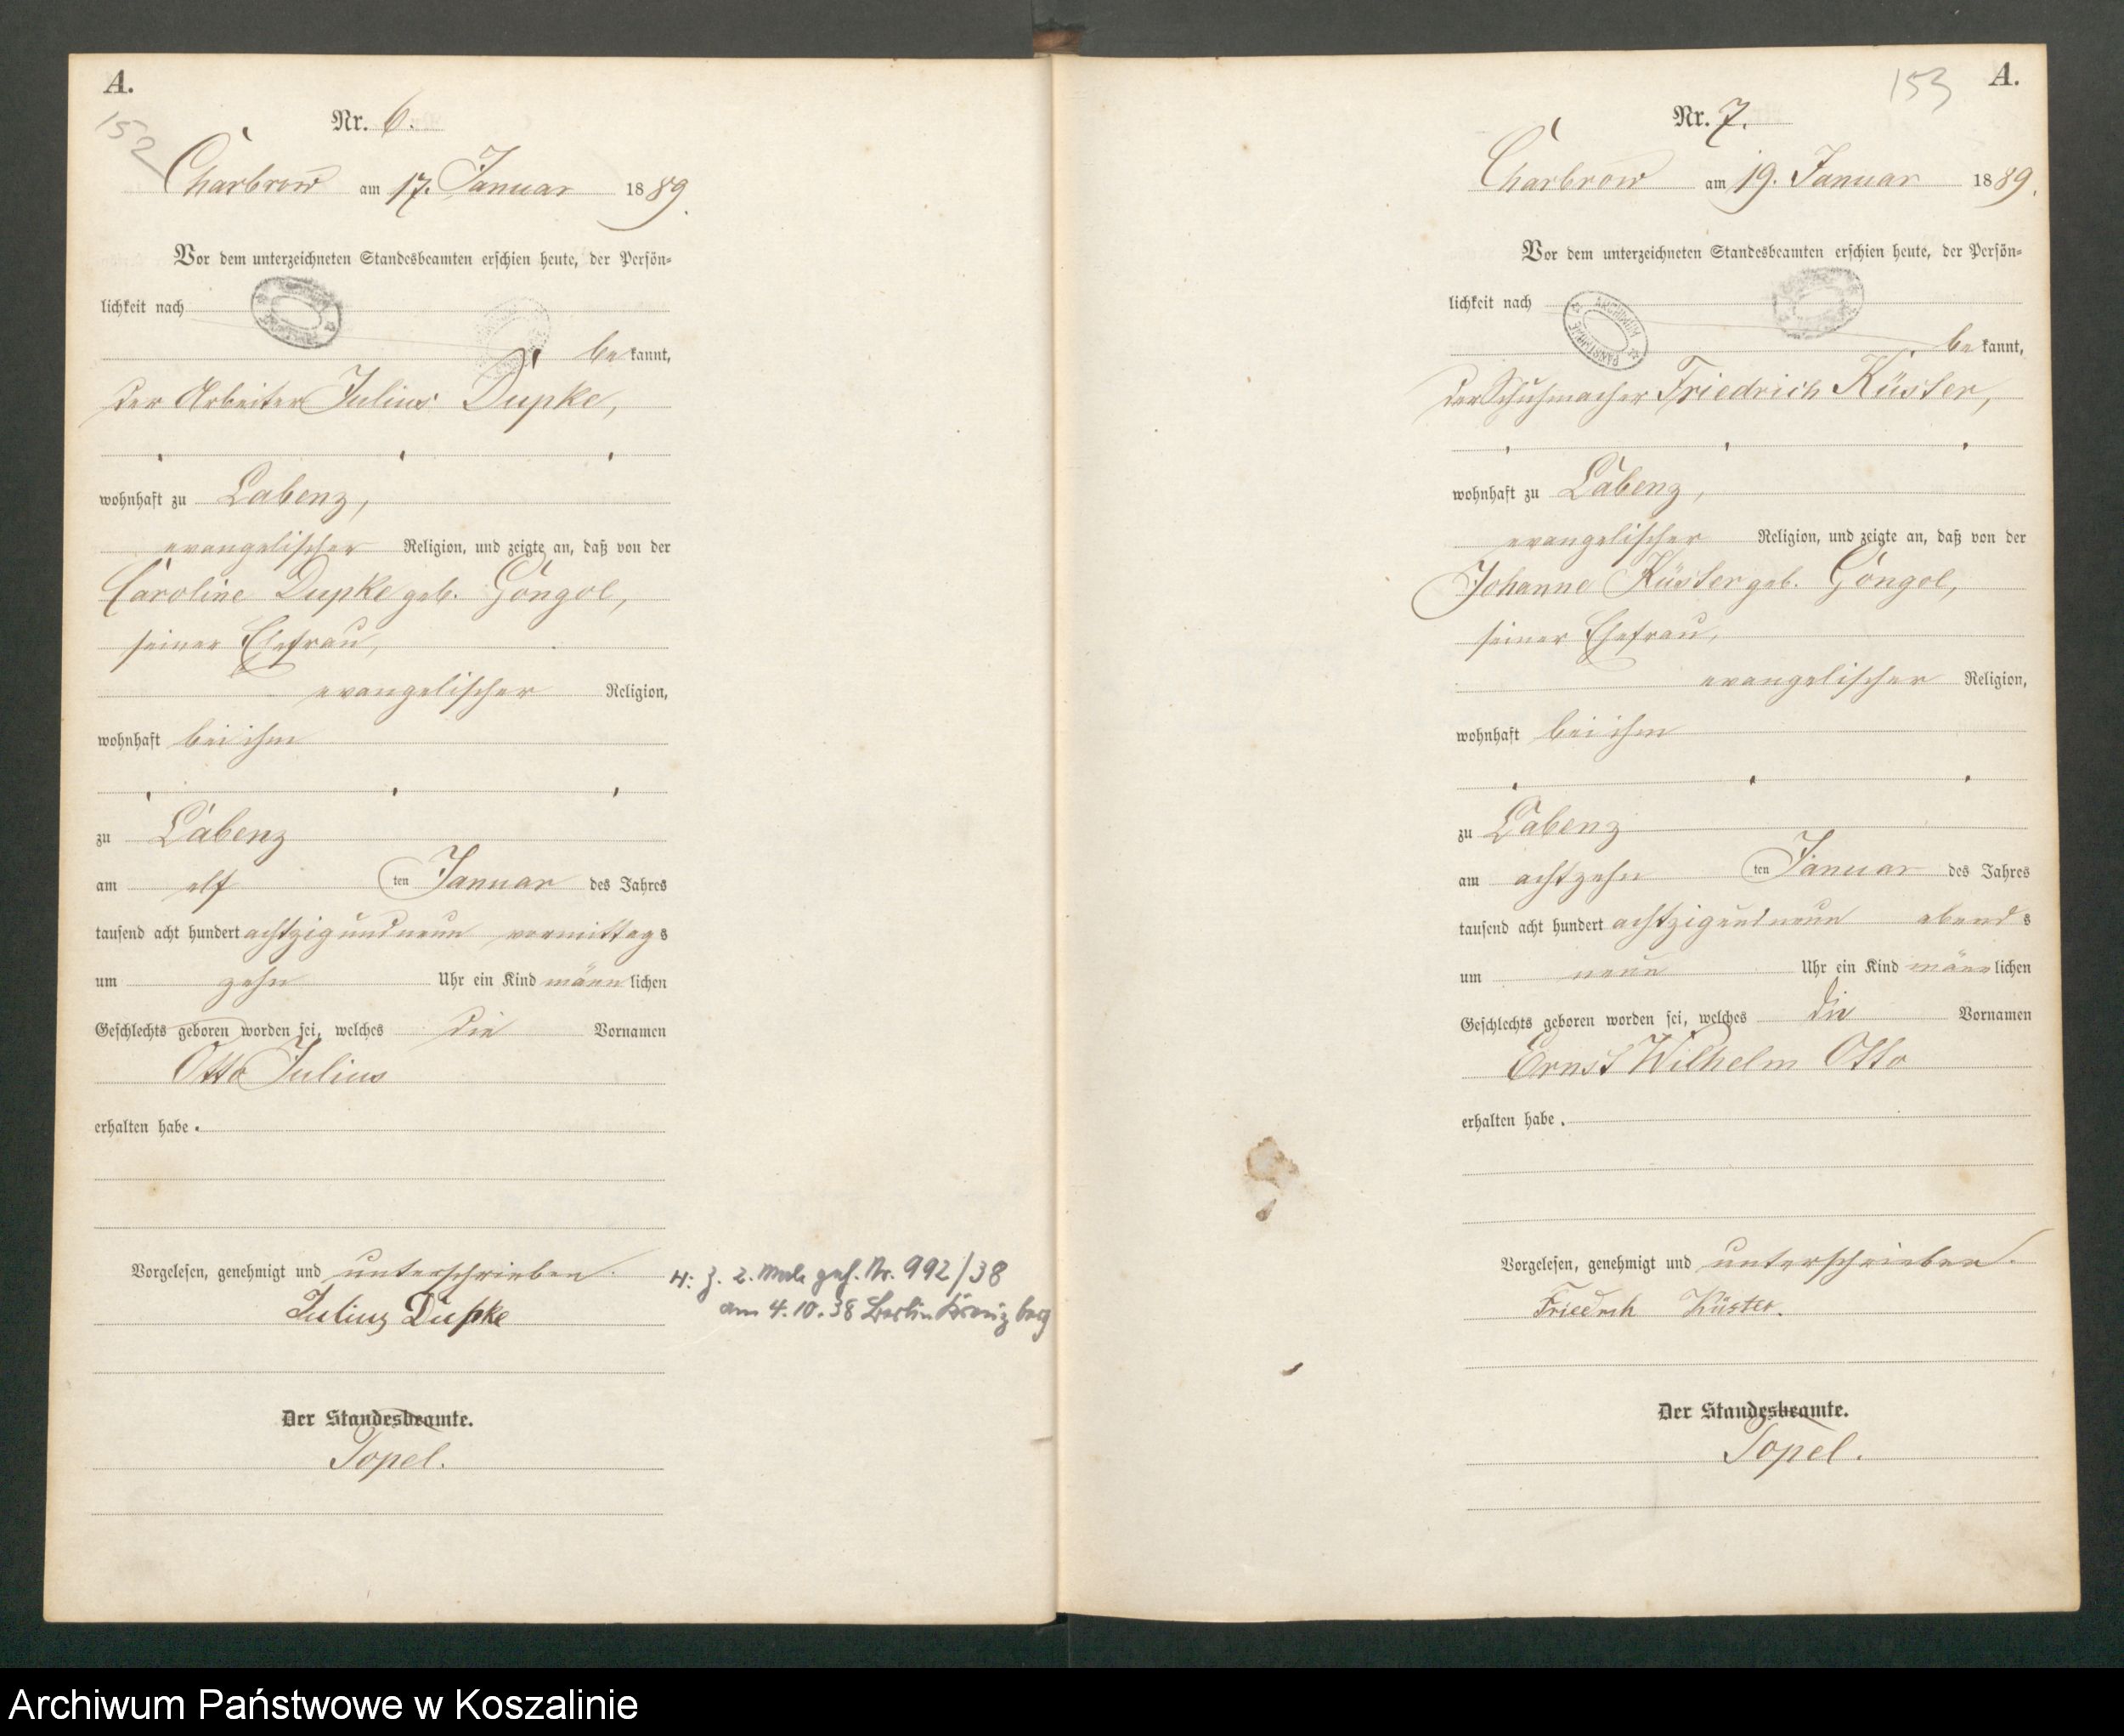 A.
152
Nr. 6.
Charbrow am 17. Januar 1889.
Vor dem unterzeichneten Standesbeamten erschien heute, der Persön-
lichkeit nach
be kannt,
der Arbeiter Julius Dupke,
wohnhaft zu Labenz,
evangelischer Religion, und zeigte an, daß von der
Caroline Dupke geb. Göngol,
seiner Ehefrau,
evangelischer Religion,
wohnhaft bei ihm
zu Labenz
am elf ten Januar des Jahres
tausend acht hundert achtzig und neun vormittags
um zehn Uhr ein Kind männlichen
Geschlechts geboren worden sei, welches die Vornamen
Otto Julius
erhalten habe.
Vorgelesen, genehmigt und unterschrieben.
Julius Dupke
H: z. 2. Male geh. Nr. 992/38
am 4.10.38 Berlin Kreuzberg
Der Standesbeamte.
Topel.
153
A.
Nr. 7.
Charbrow am 19. Januar 1889.
Vor dem unterzeichneten Standesbeamten erschien heute, der Persön-
lichkeit nach
be kannt,
der Schuhmacher Friedrich Küster,
wohnhaft zu Labenz,
evangelischer Religion, und zeigte an, daß von der
Johanne Küster geb. Göngol,
seiner Ehefrau,
evangelischer Religion,
wohnhaft bei ihm
zu Labenz
am achtzehn ten Januar des Jahres
tausend acht hundert achtzig und neun abends
um neun Uhr ein Kind männlichen
Geschlechts geboren worden sei, welches die Vornamen
Ernst Wilhelm Otto
erhalten habe.
Vorgelesen, genehmigt und unterschrieben.
Friedrich Küster.
Der Standesbeamte.
Topel.
Archiwum Państwowe w Koszalinie